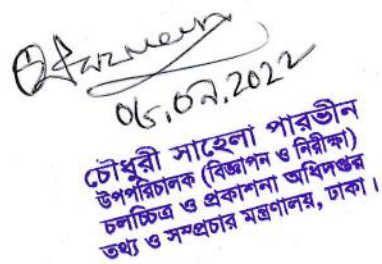 ০৬.০৯.২০২২
চৌধুরী সাহেলা পারভীন
উপপরিচালক (বিজ্ঞাপন ও নিরীক্ষা)
চলচ্চিত্র ও প্রকাশনা অধিদপ্তর
তথ্য ও সম্প্রচার মন্ত্রণালয়, ঢাকা।